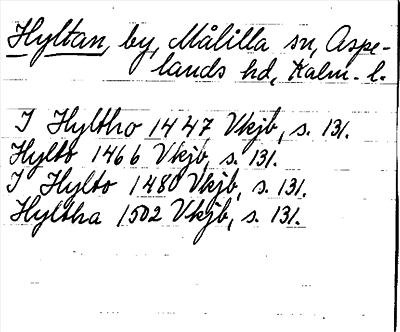 Hyltan, by, Målilla sn, Aspe-
lands hd, Kalm. l.
I Hyltho 1447 Vkjb, s. 131.
Hylto 1466 Vkjb, s. 131.
I Hylto 1480 Vkjb, s. 131.
Hyltha 1502 Vkjb, s. 131.